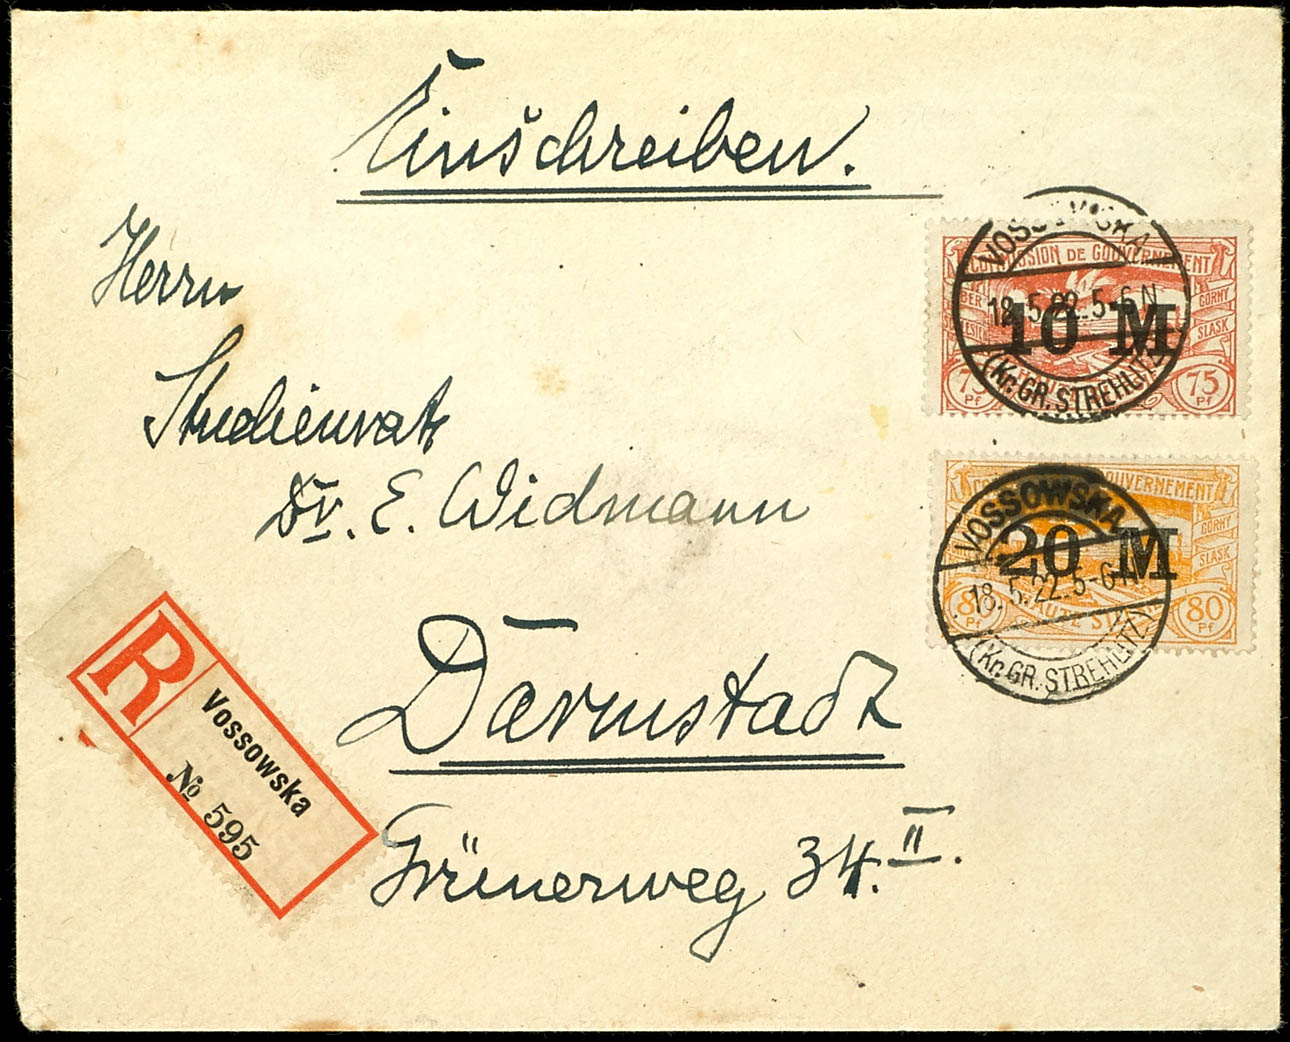 Einschreiben.
Herrn
Studienrat
Dr. E. Widmann
Darmstadt
Grünerweg 34.II.
R
Vossowska
№ 595
VOSSOWSKA
18.5.22.5-6N
(Kr. GR. STREHLITZ)
COMMISSION DE GOUVERNEMENT
GORNY
SLASK
10 M
75
Pf
75
Pf
VOSSOWSKA
18.5.22.5-6N
(Kr. GR. STREHLITZ)
GOUVERNEMENT
GORNY
SLASK
20 M
HAUTE
80
Pf
80
Pf